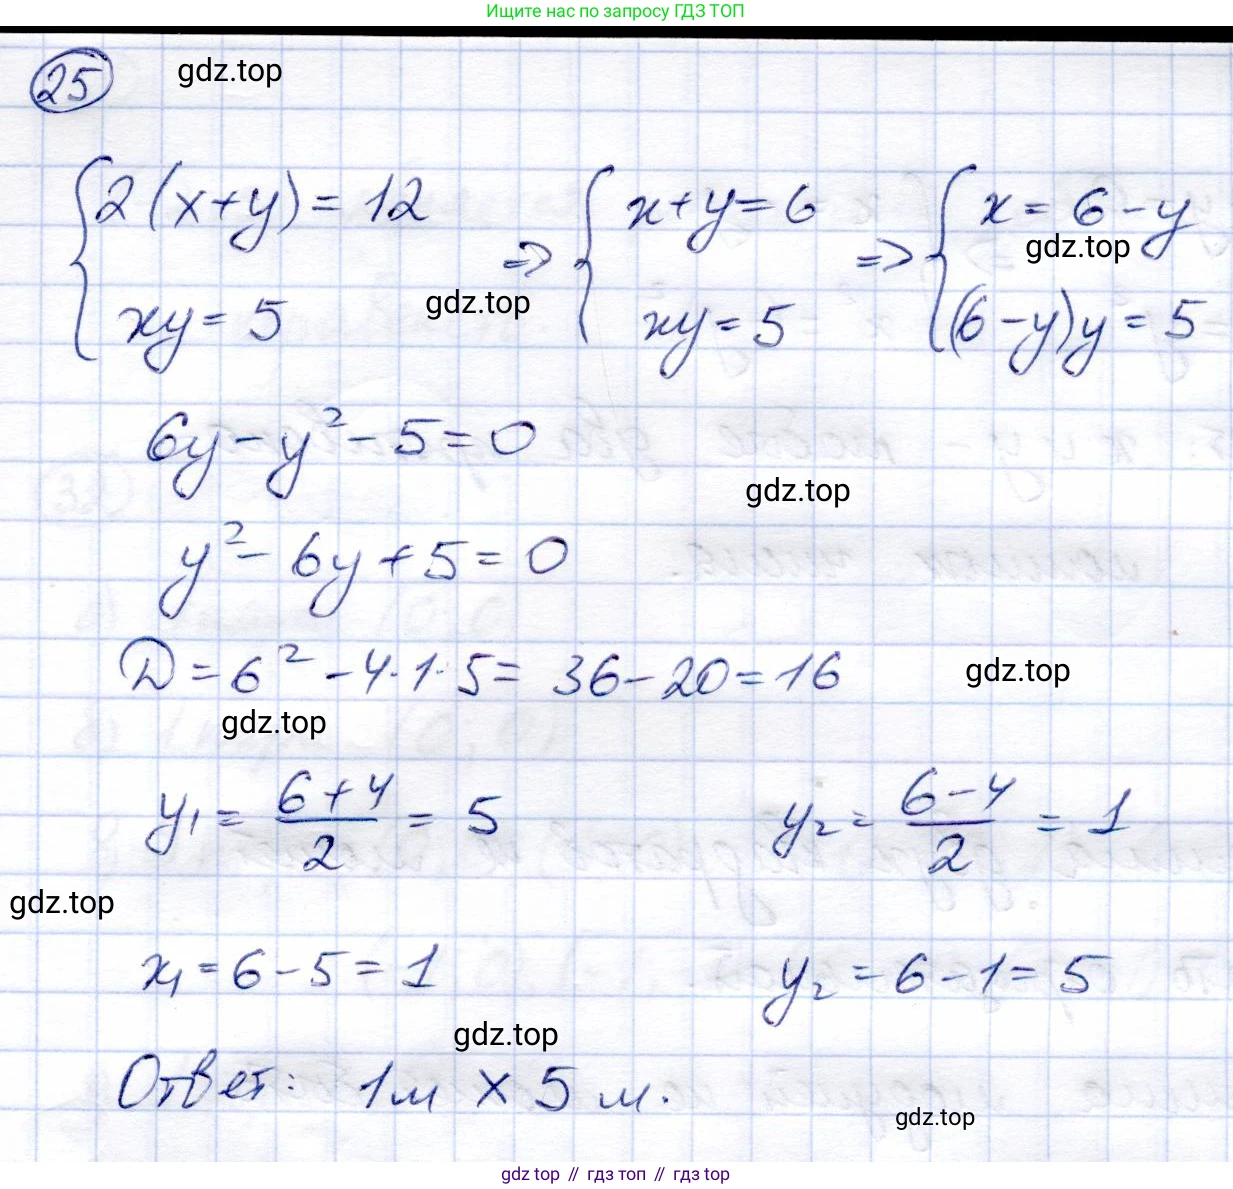 Ищите нас по запросу ГДЗ ТОП
25 gdz.top
2(x+y)=12 => x+y=6 => x=6-y
gdz.top
xy=5 gdz.top xy=5 (6-y)y=5
6y-y²-5=0
gdz.top
y²-6y+5=0
D=6²-4·1·5=36-20=16 gdz.top
gdz.top
y₁=(6+4)/2=5 y₂=(6-4)/2=1
gdz.top
x₁=6-5=1 y₂=6-1=5
gdz.top
Ответ: 1м × 5м.
gdz.top
gdz top // гдз топ // гдз top